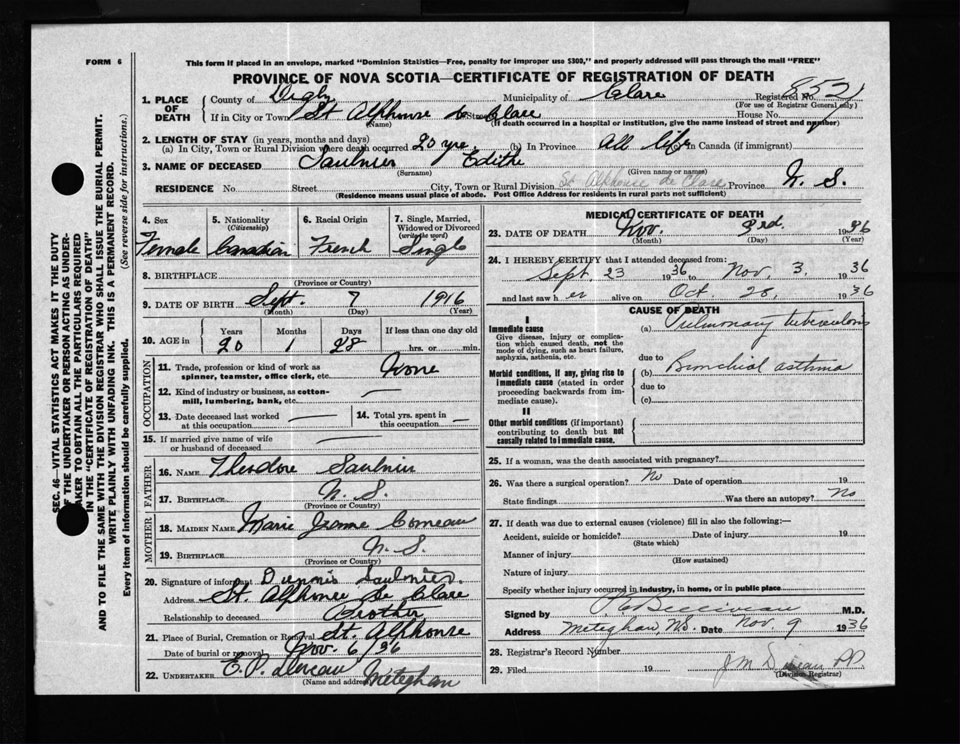 FORM 6
This form if placed in an envelope, marked "Dominion Statistics—Free, penalty for improper use $300," and properly addressed will pass through the mail "FREE"
PROVINCE OF NOVA SCOTIA—CERTIFICATE OF REGISTRATION OF DEATH
1. PLACE OF DEATH
County of Digby Municipality of Clare Registered No. 8521
(For use of Registrar General only)
If in City or Town St Alphonse de Clare Street House No.
(Name) (If death occurred in a hospital or institution, give the name instead of street and number)
2. LENGTH OF STAY (in years, months and days)
(a) In City, Town or Rural Division where death occurred 20 yrs. (b) In Province All life In Canada (if immigrant)
3. NAME OF DECEASED Saulnier Edithe
(Surname) (Given name or names)
RESIDENCE No. Street City, Town or Rural Division St Alphonse de Clare Province N. S.
(Residence means usual place of abode. Post Office Address for residents in rural parts not sufficient)
4. Sex
Female
5. Nationality
(Citizenship)
Canadian
6. Racial Origin
French
7. Single, Married, Widowed or Divorced
(write the word)
Single
8. BIRTHPLACE
(Province or Country)
9. DATE OF BIRTH Sept. 7 1916
(Month) (Day) (Year)
10. AGE in
Years Months Days If less than one day old
20 1 28 hrs. or min.
OCCUPATION
11. Trade, profession or kind of work as spinner, teamster, office clerk, etc. None
12. Kind of industry or business, as cotton-mill, lumbering, bank, etc. —
13. Date deceased last worked at this occupation —
14. Total yrs. spent in this occupation —
15. If married give name of wife or husband of deceased —
FATHER
16. NAME Theodore Saulnier
17. BIRTHPLACE N. S.
(Province or Country)
MOTHER
18. MAIDEN NAME Marie Jeanne Comeau
19. BIRTHPLACE N. S.
(Province or Country)
20. Signature of informant Dennis Saulnier.
Address St. Alphonse de Clare
Relationship to deceased Brother
21. Place of Burial, Cremation or Removal St. Alphonse
Date of burial or removal Nov. 6/36
22. UNDERTAKER E. P. Meteghan
(Name and address)
MEDICAL CERTIFICATE OF DEATH
23. DATE OF DEATH Nov. 3rd. 1936
(Month) (Day) (Year)
24. I HEREBY CERTIFY that I attended deceased from:
Sept. 23 1936 to Nov. 3. 1936
and last saw her alive on Oct 28, 1936
CAUSE OF DEATH
I
Immediate cause
Give disease, injury or complication which caused death, not the mode of dying, such as heart failure, asphyxia, asthenia, etc.
(a) Pulmonary tuberculosis
due to
Morbid conditions, if any, giving rise to immediate cause (stated in order proceeding backwards from immediate cause).
(b) Bronchial asthma
due to
(c)
II
Other morbid conditions (if important) contributing to death but not causally related to immediate cause.
25. If a woman, was the death associated with pregnancy?
26. Was there a surgical operation? No Date of operation 19
State findings Was there an autopsy? No
27. If death was due to external causes (violence) fill in also the following:—
Accident, suicide or homicide? Date of injury 19
(State which)
Manner of injury
(How sustained)
Nature of injury
Specify whether injury occurred in industry, in home, or in public place
Signed by M.D.
Address Meteghan, N.S. Date Nov. 9 1936
28. Registrar's Record Number
29. Filed 19
(Division Registrar)
SEC. 46—VITAL STATISTICS ACT MAKES IT THE DUTY
OF THE UNDERTAKER OR PERSON ACTING AS UNDER-
TAKER TO OBTAIN ALL THE PARTICULARS REQUIRED
IN THE "CERTIFICATE OF REGISTRATION OF DEATH"
AND TO FILE THE SAME WITH THE DIVISION REGISTRAR WHO SHALL ISSUE THE BURIAL PERMIT.
WRITE PLAINLY WITH UNFADING INK. THIS IS A PERMANENT RECORD.
Every item of information should be carefully supplied. (See reverse side for instructions.)